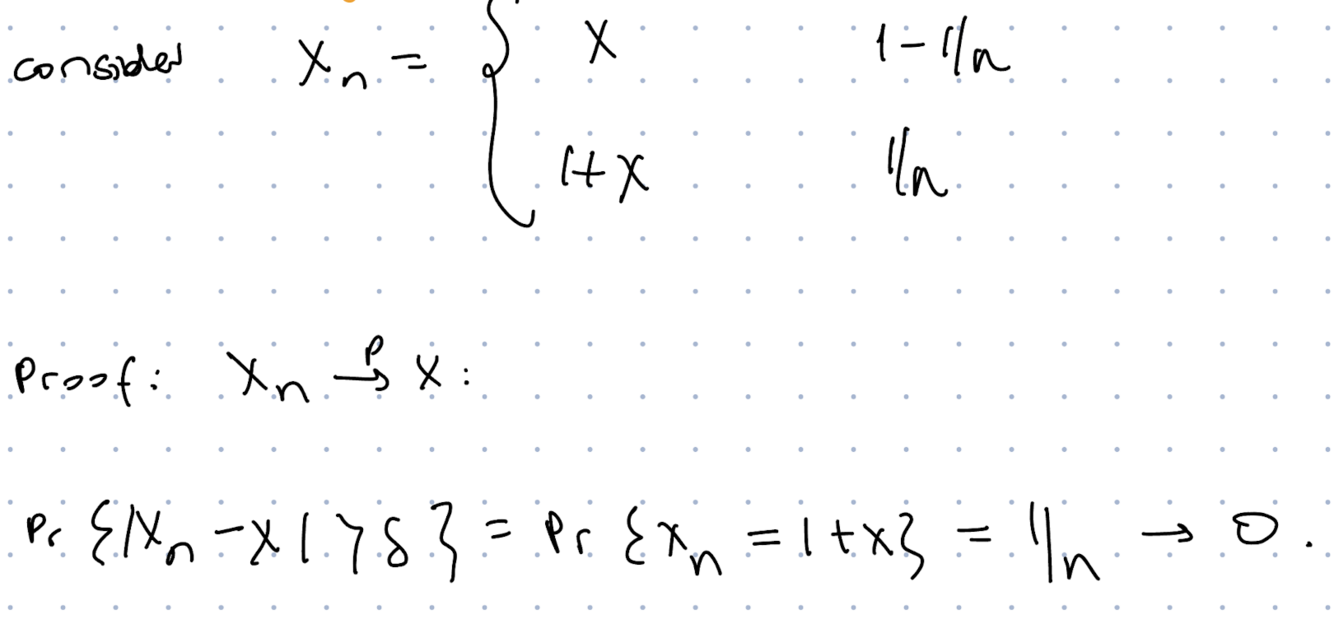 consider Xn = { X 1 - 1/n
1 + X 1/n
Proof: Xn →ᵖ X :
Pr {|Xn - X| > δ} = Pr {Xn = 1 + X} = 1/n → 0.